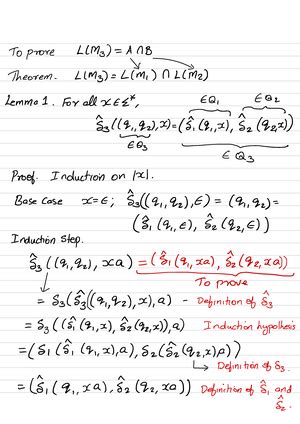 To prove L(M₃) = A∩B
Theorem. L(M₃) = L(M₁) ∩ L(M₂)
Lemma 1. For all x∈Σ*, ∈Q₁ ∈Q₂
δ̂₃((q₁,q₂),x) = (δ̂₁(q₁,x), δ̂₂(q₂,x))
∈Q₃ ∈Q₃
Proof. Induction on |x|.
Base case x=ϵ; δ̂₃((q₁,q₂),ϵ) = (q₁,q₂) =
(δ̂₁(q₁,ϵ), δ̂₂(q₂,ϵ))
Induction step.
δ̂₃((q₁,q₂), xa) = (δ̂₁(q₁,xa), δ̂₂(q₂,xa))
To prove
= δ₃(δ̂₃((q₁,q₂),x),a) - Definition of δ̂₃
= δ₃((δ̂₁(q₁,x), δ̂₂(q₂,x)),a) Induction hypothesis
= (δ₁(δ̂₁(q₁,x),a), δ₂(δ̂₂(q₂,x)a))
Definition of δ₃.
= (δ̂₁(q₁,xa), δ̂₂(q₂,xa)) Definition of δ̂₁ and
δ̂₂.